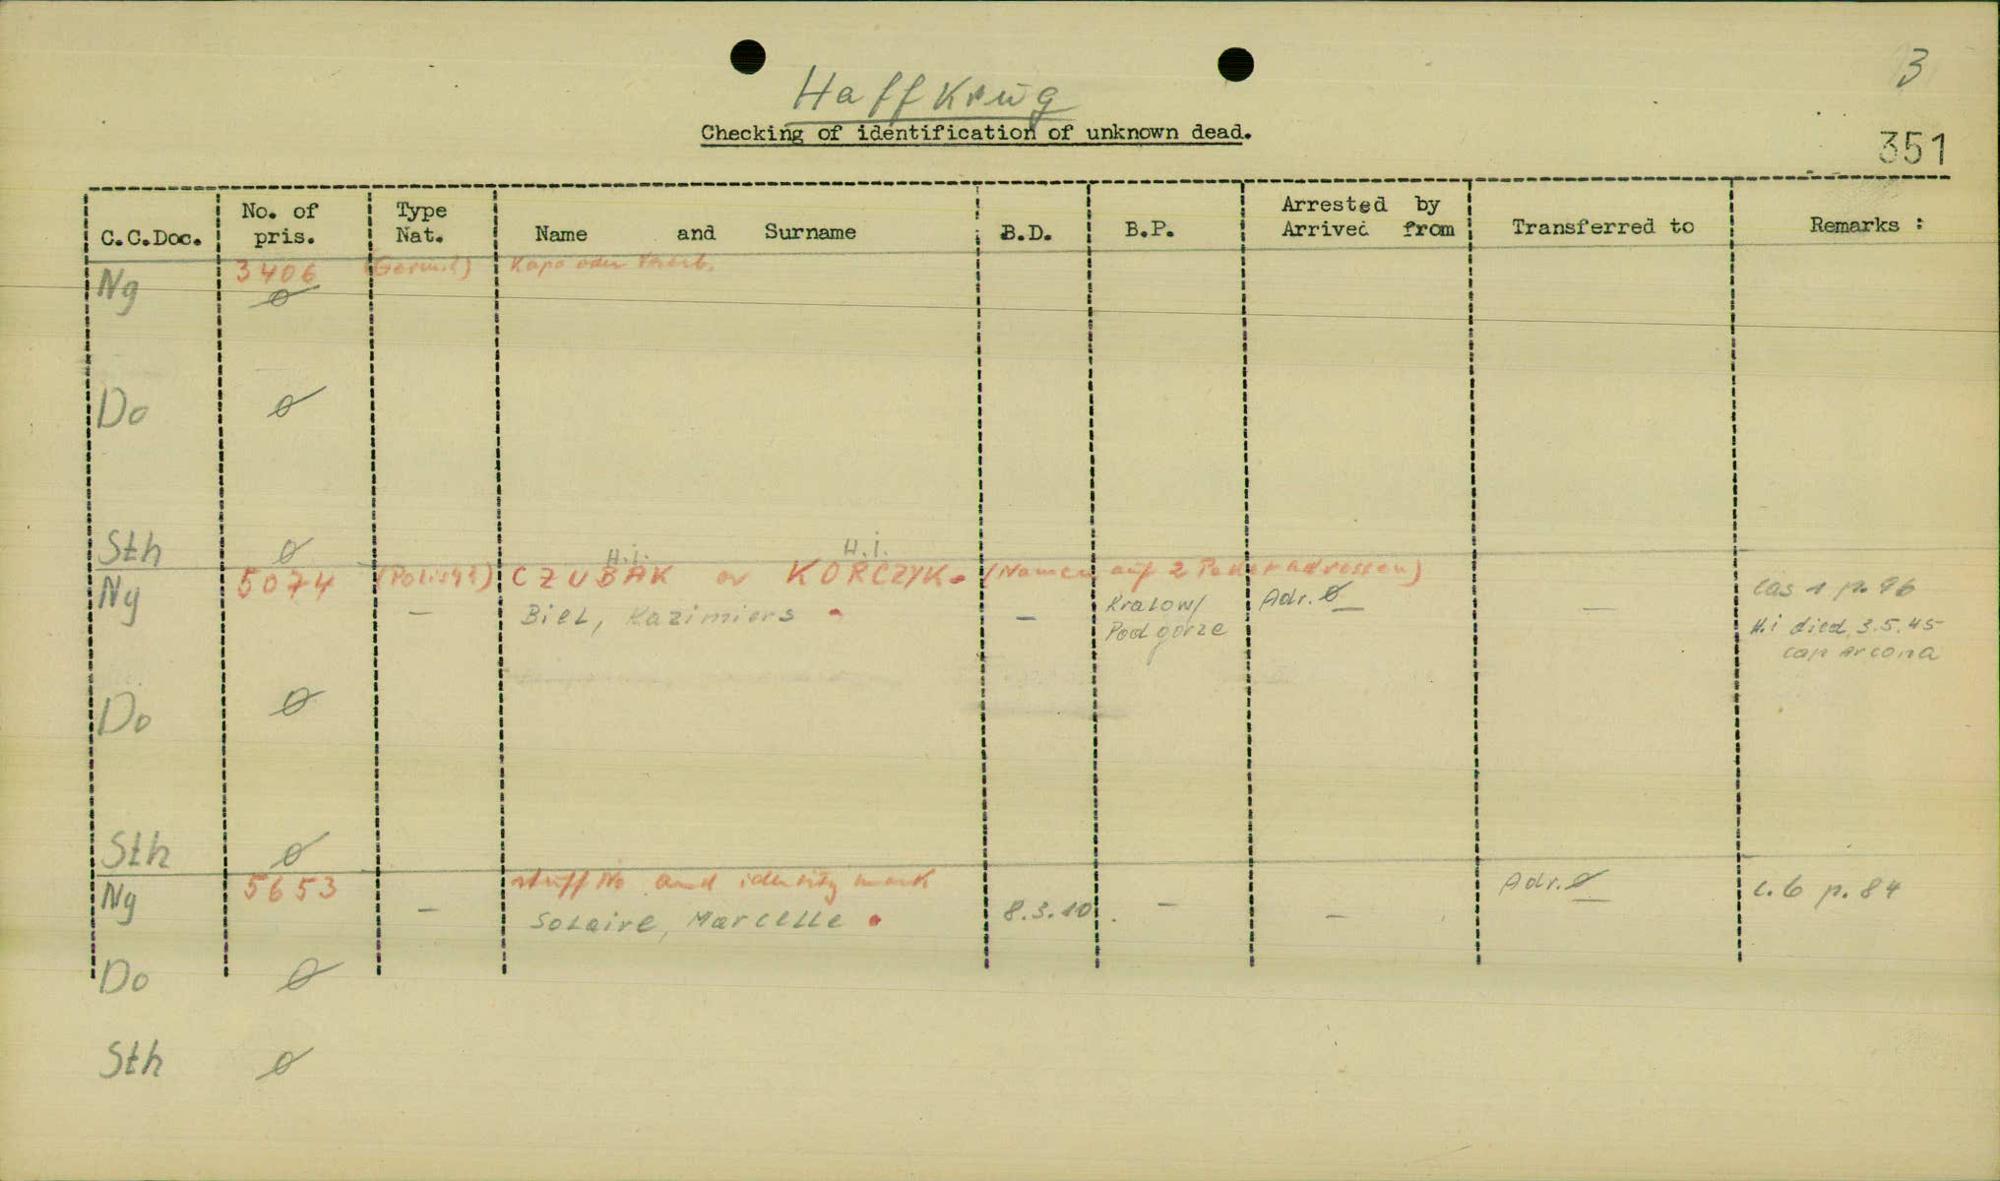 3
Haffkrüg
Checking of identification of unknown dead.
351
C.C.Doc. No. of pris. Type Nat. Name and Surname B.D. B.P. Arrested by Arrived from Transferred to Remarks :
Ng 3406 (Germ.?) Kapo oder
ø
Do ø
Sth ø
H.i. H.i.
Ng 5074 (Polish?) CZUBAK or KORCZYK. (Namen auf 2 Paketadressen)
— Biel, Kazimiers - — Krakow/ Podgorze Adr. ø — — cas 1 p. 96
H.i died 3.5.45
cap arcona
Do ø
Sth ø
Ng 5653 stuff No and identity mark
— Solaire, Marcelle . 8.3.10. — — Adr. ø c.6 p.84
Do ø
Sth ø